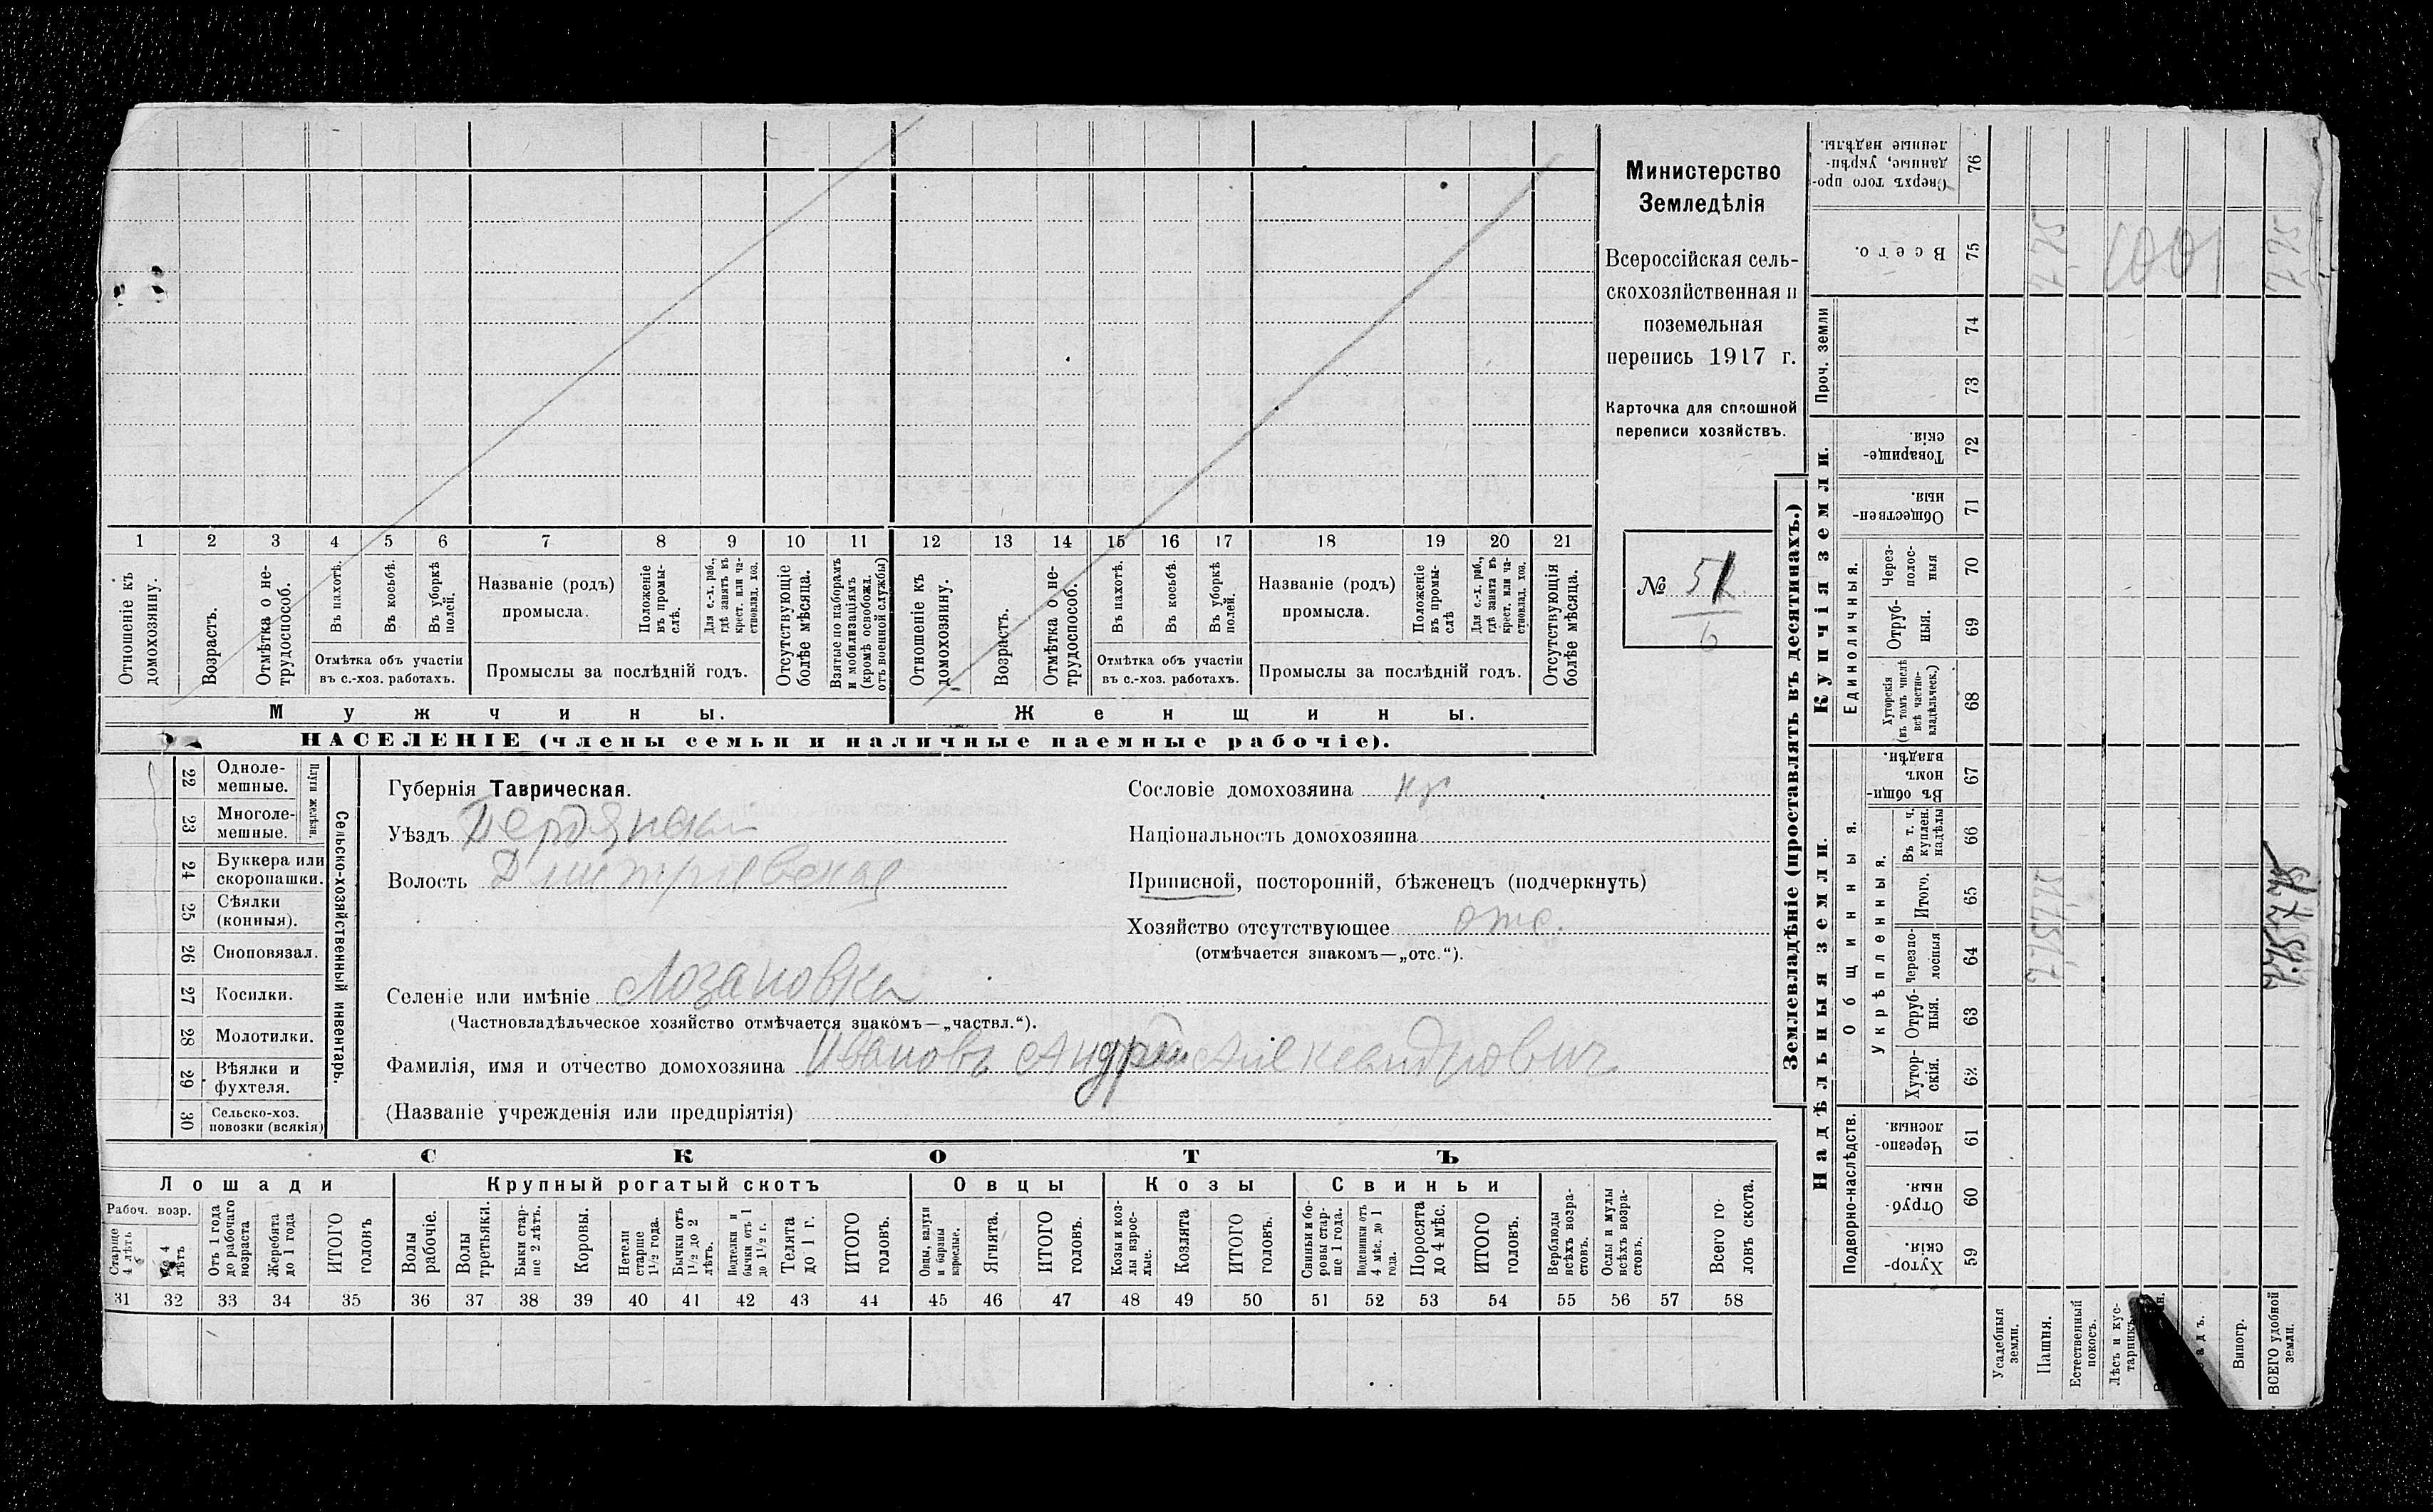 Министерство
Земледѣлія
Всероссійская сель-
скохозяйственная и
поземельная
перепись 1917 г.
Карточка для сплошной
переписи хозяйствъ.
№ 51
6
1 2 3 4 5 6 7 8 9 10 11 12 13 14 15 16 17 18 19 20 21
Отношеніе къ домохозяину.
Возрастъ.
Отмѣтка о не-трудоспособ.
Въ пахотѣ.
Въ косьбѣ.
Въ уборкѣ полей.
Отмѣтка объ участіи
въ с.-хоз. работахъ.
Названіе (родъ)
промысла.
Положеніе въ промы-слѣ.
Для с.-х. раб., гдѣ занятъ въ крест. или ча-стновлад. хоз.
Промыслы за послѣдній годъ.
Отсутствующіе болѣе мѣсяца.
Взятые по наборамъ и мобилизаціямъ (кромѣ освобожд. отъ военной службы)
Отношеніе къ домохозяину.
Возрастъ.
Отмѣтка о не-трудоспособ.
Въ пахотѣ.
Въ косьбѣ.
Въ уборкѣ полей.
Отмѣтка объ участіи
въ с.-хоз. работахъ.
Названіе (родъ)
промысла.
Положеніе въ промы-слѣ
Для с.-х. раб., гдѣ занята въ крест. или ча-стновлад. хоз.
Промыслы за послѣдній годъ.
Отсутствующія болѣе мѣсяца.
Мужчины.
Женщины.
НАСЕЛЕНІЕ (члены семьи и наличные наемные рабочіе).
22 Одноле-мешные.
23 Многоле-мешные.
Плуги желѣзн.
24 Буккера или скоропашки.
25 Сѣялки (конныя).
26 Сноповязал.
27 Косилки.
28 Молотилки.
29 Вѣялки и фухтеля.
30 Сельско-хоз. повозки (всякія)
Сельско-хозяйственный инвентарь.
Губернія Таврическая.
Уѣздъ Бердянскій
Волость Дмитріевская
Сословіе домохозяина кр
Національность домохозяина
Приписной, посторонній, бѣженецъ (подчеркнуть)
Хозяйство отсутствующее отс.
(отмѣчается знакомъ—„отс.“).
Селеніе или имѣніе Лозановка
(Частновладѣльческое хозяйство отмѣчается знакомъ—„частвл.“).
Фамилія, имя и отчество домохозяина Ивановъ Андрей Александрович
(Названіе учрежденія или предпріятія)
СКОТЪ
Лошади
Крупный рогатый скотъ
Овцы
Козы
Свиньи
Рабоч. возр.
Старше 4 лѣтъ
До 4 лѣтъ
Отъ 1 года до рабочаго возраста
Жеребята до 1 года
ИТОГО головъ
Волы рабочіе.
Волы третьяки.
Быки стар-ше 2 лѣтъ.
Коровы.
Нетели старше 1½ года.
Бычки отъ 1½ до 2 лѣтъ.
Подтелки и бычки отъ 1 до 1½ г.
Телята до 1 г.
ИТОГО головъ.
Овцы, валухи и бараны взрослые.
Ягнята.
ИТОГО головъ.
Козы и коз-лы взрос-лые.
Козлята
ИТОГО головъ.
Свиньи и бо-ровы стар-ше 1 года.
Подсвинки отъ 4 мѣс. до 1 года.
Поросята до 4 мѣс.
ИТОГО головъ.
Верблюды всѣхъ возра-стовъ.
Ослы и мулы всѣхъ возра-стовъ.
Всего го-ловъ скота.
31 32 33 34 35 36 37 38 39 40 41 42 43 44 45 46 47 48 49 50 51 52 53 54 55 56 57 58
Землевладѣніе (проставлять въ десятинахъ.)
Надѣльныя земли.
Купчія земли.
Проч. земли
Подворно-наслѣдств.
Общинныя.
Укрѣпленныя.
Единоличныя.
Сверхъ того про-данные, укрѣп-ленные надѣлы. 76
Всего. 75 7,75 7 75
74
73
Товарище-скія. 72
Обществен-ныя. 71
Через-полос-ныя 70
Отруб-ныя. 69
Хуторскія (въ томъ числѣ всѣ частно-владѣльческ.) 68
Въ общи-номъ владѣн. 67
Въ т. ч. куплен. надѣлы 66
Итого. 65
Черезпо-лосныя 64
Отруб-ныя. 63
Хутор-скія. 62
Черезпо-лосныя. 61
Отруб-ныя. 60
Хутор-скія. 59
Усадебныя земли.
Пашня.
Естественный покосъ.
Лѣсъ и кус-тарникъ
Виногр.
ВСЕГО удобной земли.